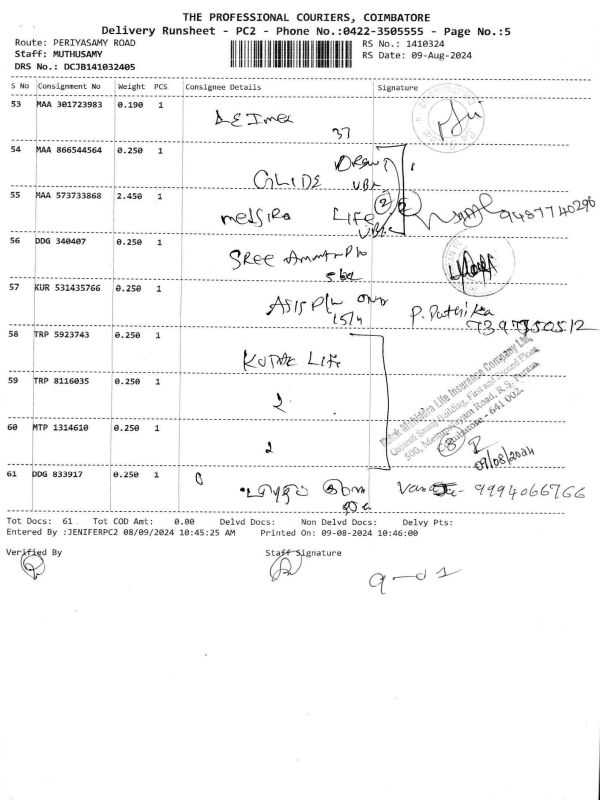 THE PROFESSIONAL COURIERS, COIMBATORE
Delivery Runsheet - PC2 - Phone No.:0422-3505555 - Page No.:5
Route: PERIYASAMY ROAD
Staff: MUTHUSAMY
DRS No.: DCJB141032405
RS No.: 1410324
RS Date: 09-Aug-2024
S No Consignment No Weight PCS Consignee Details Signature
53 MAA 301723983 0.190 1
37
54 MAA 866544564 0.250 1
GLIDE
55 MAA 573733868 2.450 1
LIFE
9487740296
56 DDG 340407 0.250 1
SREE
57 KUR 531435766 0.250 1
58 TRP 5923743 0.250 1
KOTAK LIFE
59 TRP 8116035 0.250 1
2
Kotak Mahindra Life Insurance Company Ltd,
Gujarati Samaj Building, First and Second Floor,
500, Mettupalayam Road, R.S. Puram,
Coimbatore - 641 002.
60 MTP 1314610 0.250 1
2
8
09/08/2024
61 DDG 833917 0.250 1
9994066766
Tot Docs: 61 Tot COD Amt: 0.00 Delvd Docs: Non Delvd Docs: Delvy Pts:
Entered By :JENIFERPC2 08/09/2024 10:45:25 AM Printed On: 09-08-2024 10:46:00
Verified By Staff Signature
9-01